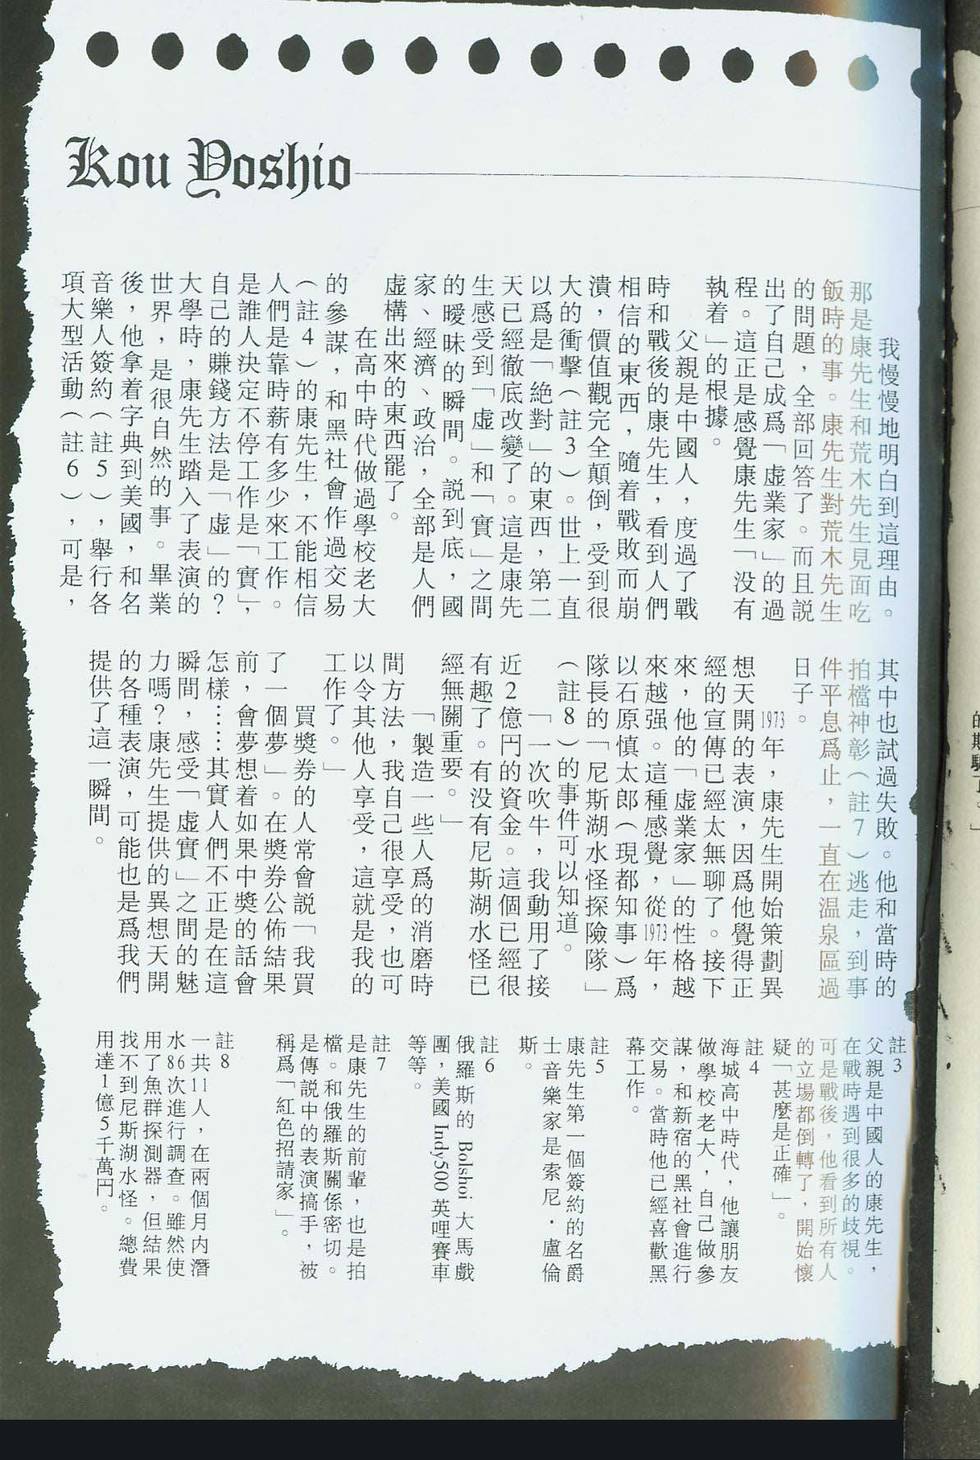 Kou Yoshio
我慢慢地明白到這理由。
那是康先生和荒木先生見面吃
飯時的事。康先生對荒木先生
的問題，全部回答了。而且説
出了自己成爲「虛業家」的過
程。這正是感覺康先生「没有
執着」的根據。
父親是中國人，度過了戰
時和戰後的康先生，看到人們
相信的東西，隨着戰敗而崩
潰，價值觀完全顛倒，受到很
大的衝擊（註3）。世上一直
以爲是「絶對」的東西，第二
天已經徹底改變了。這是康先
生感受到「虛」和「實」之間
的曖昧的瞬間。説到底，國
家、經濟、政治，全部是人們
虛構出來的東西罷了。
在高中時代做過學校老大
的參謀，和黑社會作過交易
（註4）的康先生，不能相信
人們是靠時薪有多少來工作。
是誰人決定不停工作是「實」，
自己的賺錢方法是「虛」的？
大學時，康先生踏入了表演的
世界，是很自然的事。畢業
後，他拿着字典到美國，和名
音樂人簽約（註5），舉行各
項大型活動（註6），可是，
其中也試過失敗。他和當時的
拍檔神彰（註7）逃走，到事
件平息爲止，一直在温泉區過
日子。
1973年，康先生開始策劃異
想天開的表演，因爲他覺得正
經的宣傳已經太無聊了。接下
來，他的「虛業家」的性格越
來越强。這種感覺，從1973年，
以石原慎太郎（現都知事）爲
隊長的「尼斯湖水怪探險隊」
（註8）的事件可以知道。
「一次吹牛，我動用了接
近2億円的資金。這個已經很
有趣了。有没有尼斯湖水怪已
經無關重要。」
「製造一些人爲的消磨時
間方法，我自己很享受，也可
以令其他人享受，這就是我的
工作了。」
買獎券的人常會説「我買
了一個夢」。在獎券公佈結果
前，會夢想着如果中獎的話會
怎樣……其實人們不正是在這
瞬間，感受「虛實」之間的魅
力嗎？康先生提供的異想天開
的各種表演，可能也是爲我們
提供了這一瞬間。
註3
父親是中國人的康先生，
在戰時遇到很多的歧視。
可是戰後，他看到所有人
的立場都倒轉了，開始懷
疑「甚麼是正確」。
註4
海城高中時代，他讓朋友
做學校老大，自己做參
謀，和新宿的黑社會進行
交易。當時他已經喜歡黑
幕工作。
註5
康先生第一個簽約的名爵
士音樂家是索尼．盧倫
斯。
註6
俄羅斯的 Bolshoi 大馬戲
團，美國Indy500英哩賽車
等等。
註7
是康先生的前輩，也是拍
檔。和俄羅斯關係密切。
是傳説中的表演搞手，被
稱爲「紅色招請家」。
註8
一共11人，在兩個月內潛
水86次進行調查。雖然使
用了魚群探測器，但結果
找不到尼斯湖水怪。總費
用達1億5千萬円。